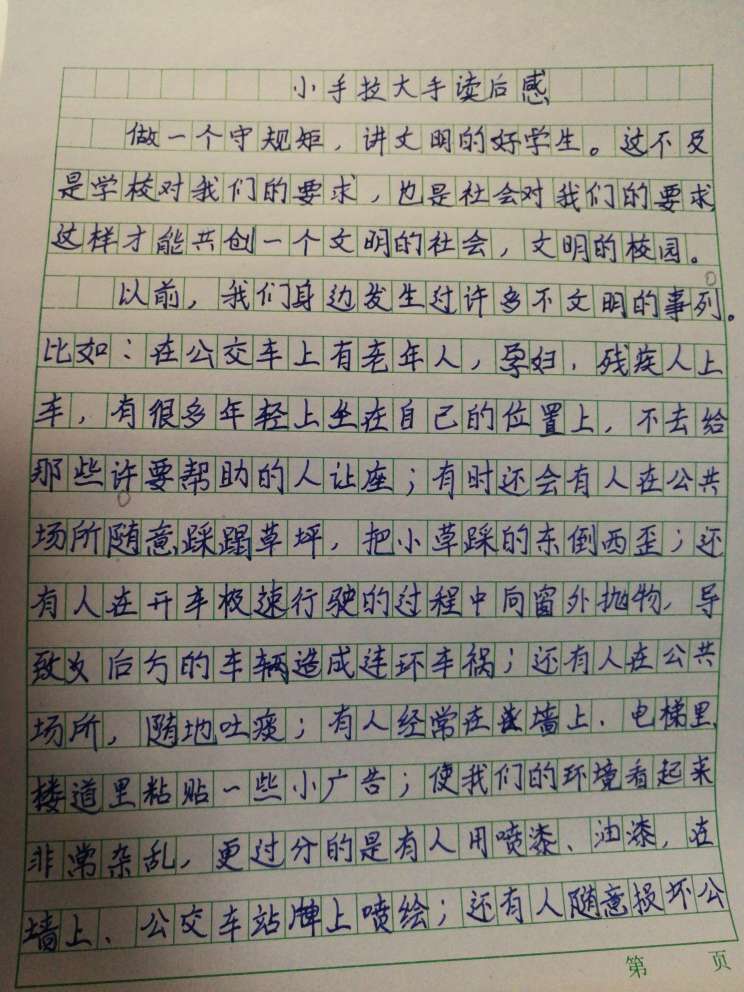 小手拉大手读后感
做一个守规矩，讲文明的好学生。这不及
是学校对我们的要求，也是社会对我们的要求，
这样才能共创一个文明的社会，文明的校园。
以前，我们身边发生过许多不文明的事列。
比如：在公交车上有老年人，孕妇，残疾人上
车，有很多年轻上坐在自己的位置上，不去给
那些许要帮助的人让座；有时还会有人在公共
场所随意踩蹋草坪，把小草踩的东倒西歪；还
有人在开车极速行驶的过程中向窗外抛物，导
致后方的车辆造成连环车祸；还有人在公共
场所，随地吐痰；有人经常在墙上、电梯里，
楼道里粘贴一些小广告；使我们的环境看起来
非常杂乱，更过分的是有人用喷漆、油漆，在
墙上、公交车站牌上喷绘；还有人随意损坏公
第 页